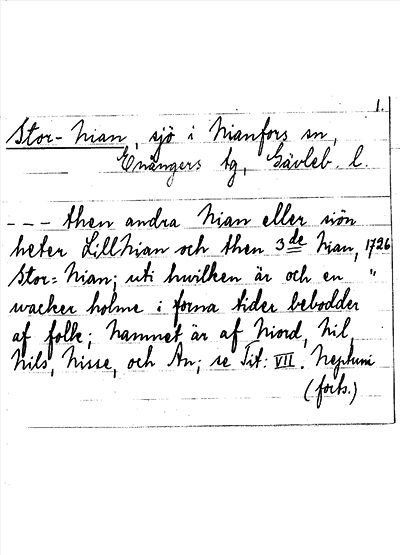 1.
Stor-Nian, sjö i Nianfors sn,
Enångers tg, Gävleb. l.
--- then andra Nian eller siön
heter LillNian och then 3de Nian, 1726
Stor=Nian; uti hwilken är och en "
wacker holme i forna tider bebodder
af folk; Namnet är af Niord, Nil,
Nils, Nisse, och An; se Tit: VII. Neptuni
(forts.)